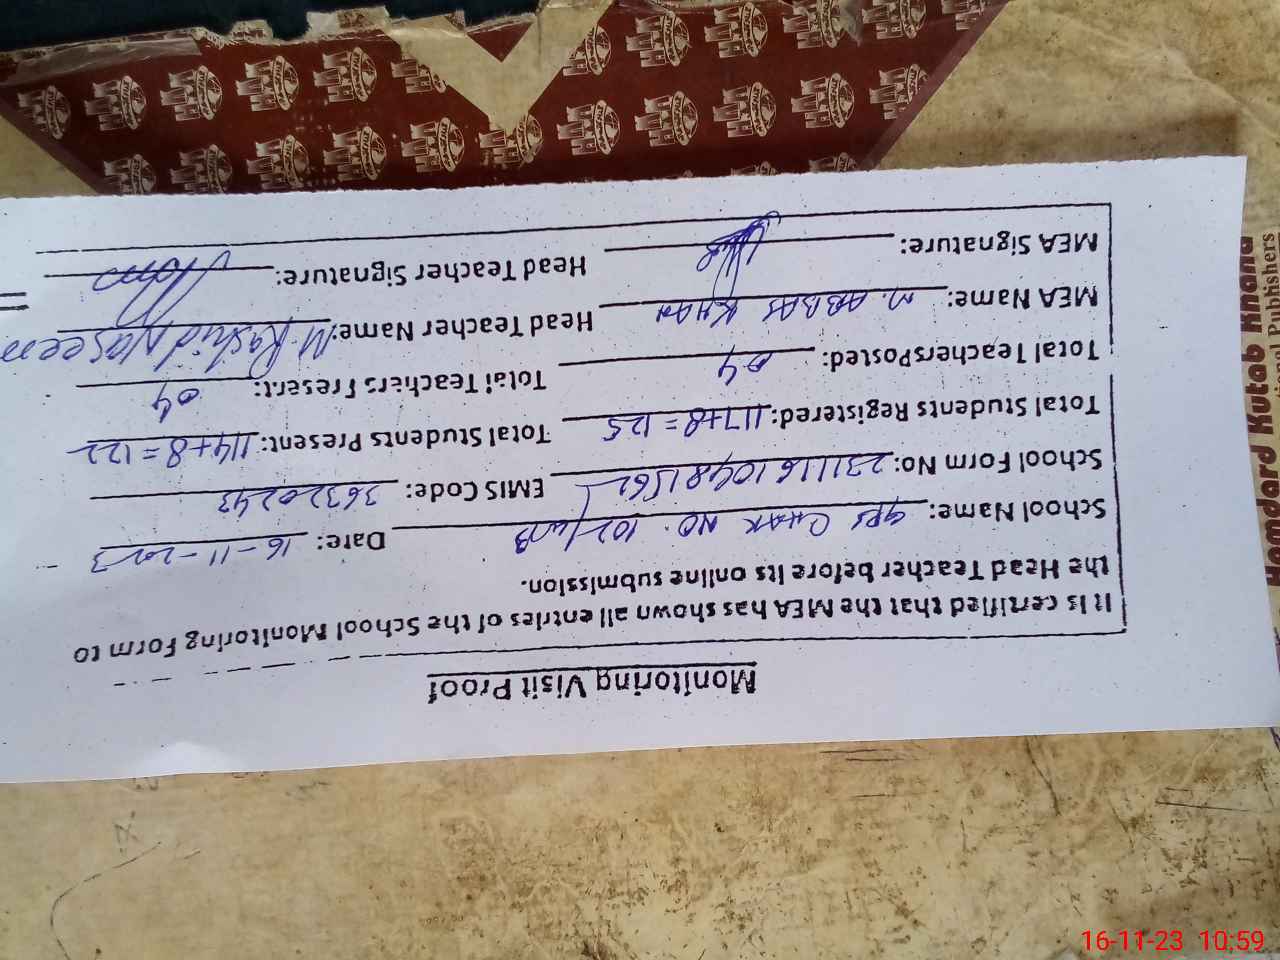 Monitoring Visit Proof
It is certified that the MEA has shown all entries of the School Monitoring Form to
the Head Teacher before its online submission.
School Name: GPS CHAK NO. 102/WB Date: 16-11-2023
School Form No: EMIS Code: 36320243
Total Students Registered: 117+8=125 Total Students Present: 114+8=122
Total TeachersPosted: 04 Total Teachers Present: 04
MEA Name: M. ABBAS KHAN Head Teacher Name: M. Rashid Naseem
MEA Signature: Head Teacher Signature:
Hamdard Kutab Khana
Publishers
16-11-23 10:59